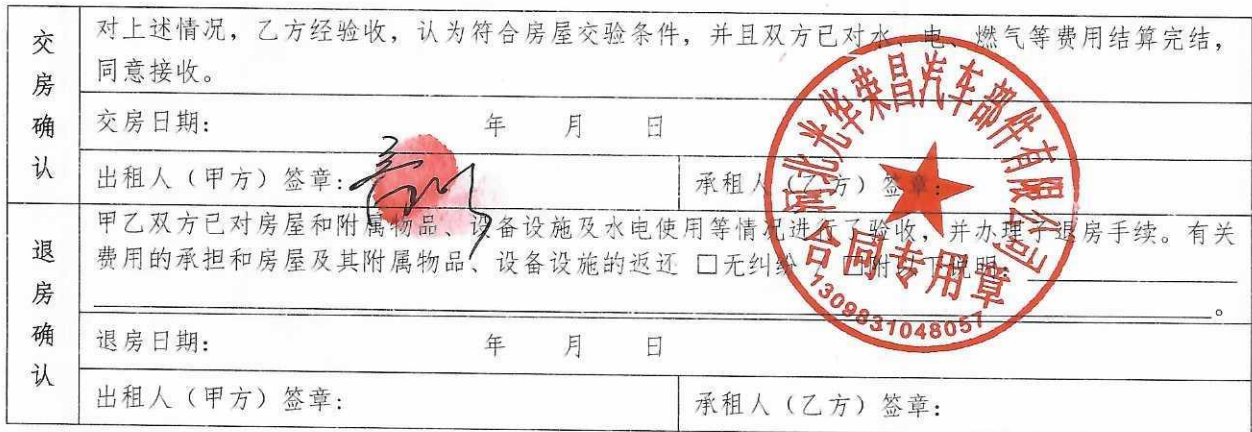 交房确认
对上述情况，乙方经验收，认为符合房屋交验条件，并且双方已对水、电、燃气等费用结算完结，
同意接收。
交房日期： 年 月 日
出租人（甲方）签章：
承租人（乙方）签章：
退房确认
甲乙双方已对房屋和附属物品、设备设施及水电使用等情况进行了验收，并办理了退房手续。有关
费用的承担和房屋及其附属物品、设备设施的返还 □无纠纷 / □附以下说明：
。
退房日期： 年 月 日
出租人（甲方）签章：
承租人（乙方）签章：
河北光华荣昌汽车部件有限公司
合同专用章
1309831048057